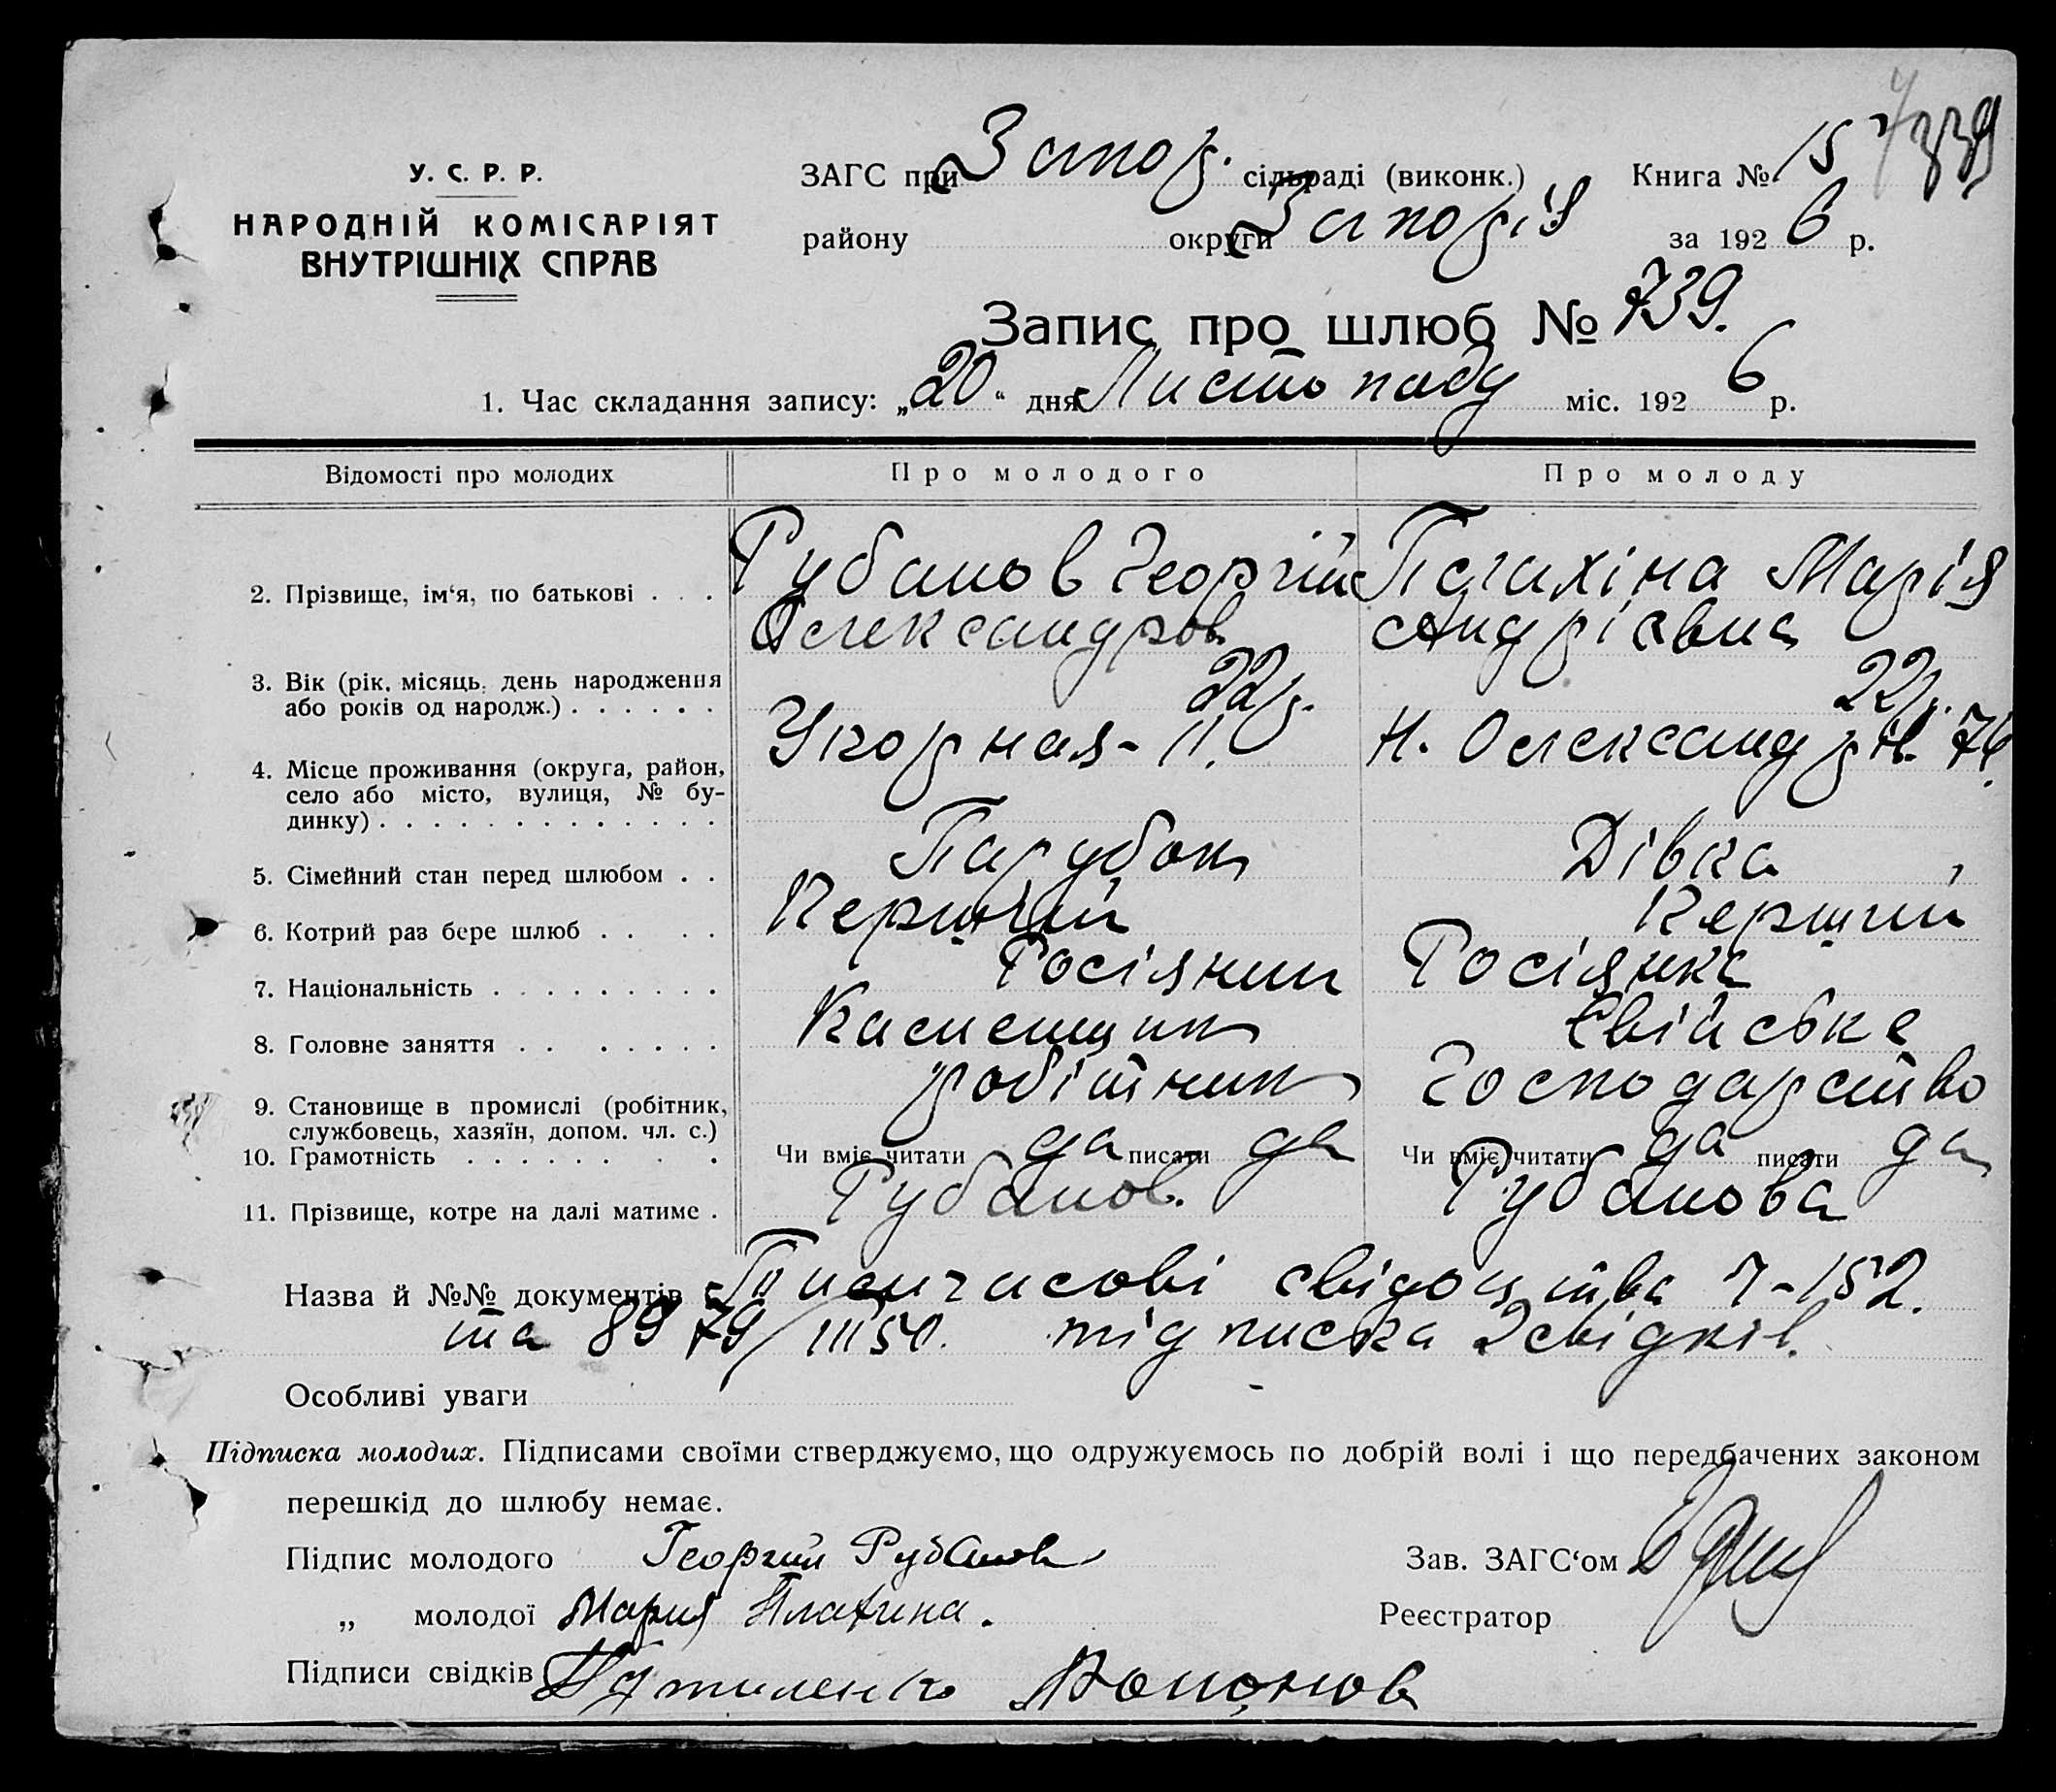 У. С. Р. Р.
НАРОДНІЙ КОМІСАРІЯТ
ВНУТРІШНІХ СПРАВ
ЗАГС при Запор. сільраді (виконк.) Книга № 15
району округи Запоріз за 1926 р.
Запис про шлюб № 739.
1. Час складання запису: „20“ дня Листопаду міс. 1926 р.
Відомості про молодих Про молодого Про молоду
2. Прізвище, ім‘я, по батькові . . . Рубанов Георгій Плахіна Марія
Олександров Андріевна
3. Вік (рік, місяць, день народження або років од народж.) . . . . . . 22р. 22р.
4. Місце проживання (округа, район, село або місто, вулиця, № будинку) . . . . . . . . . . . . . Угорная - 11. Н. Олександрів. 76.
5. Сімейний стан перед шлюбом . . Парубок Дівка
6. Котрий раз бере шлюб . . . . Перший Перший
7. Національність . . . . . . . . . Росіянин Росіянка
8. Головне заняття . . . . . . . Каменщик Свійське
9. Становище в промислі (робітник, службовець, хазяїн, допом. чл. с.) робітник господарство
10. Грамотність . . . . . . . . Чи вміє читати да писати да Чи вміє читати да писати да
11. Прізвище, котре на далі матиме . Рубанов. Рубанова
Назва й №№ документів Тимчасові свідоцтва 7-152.
та 8979/11150. підписка 2 свідків.
Особливі уваги -
Підписка молодих. Підписами своїми стверджуємо, що одружуємось по добрій волі і що передбачених законом
перешкід до шлюбу немає.
Підпис молодого Георгий Рубанов Зав. ЗАГС‘ом
„ молодої Мария Плахина. Реєстратор
Підписи свідків